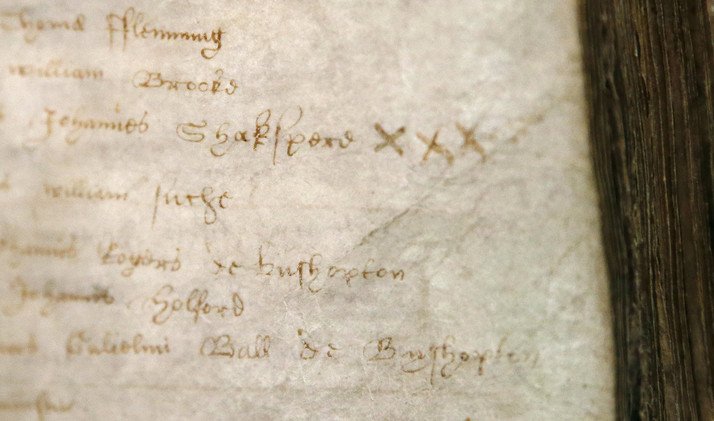 Thoma Fflemming
william Brooke
Johannes Shakspere x x x
william
Rogers de bushopton
Johannis Holford
Gulielmi Ball de Byshopton